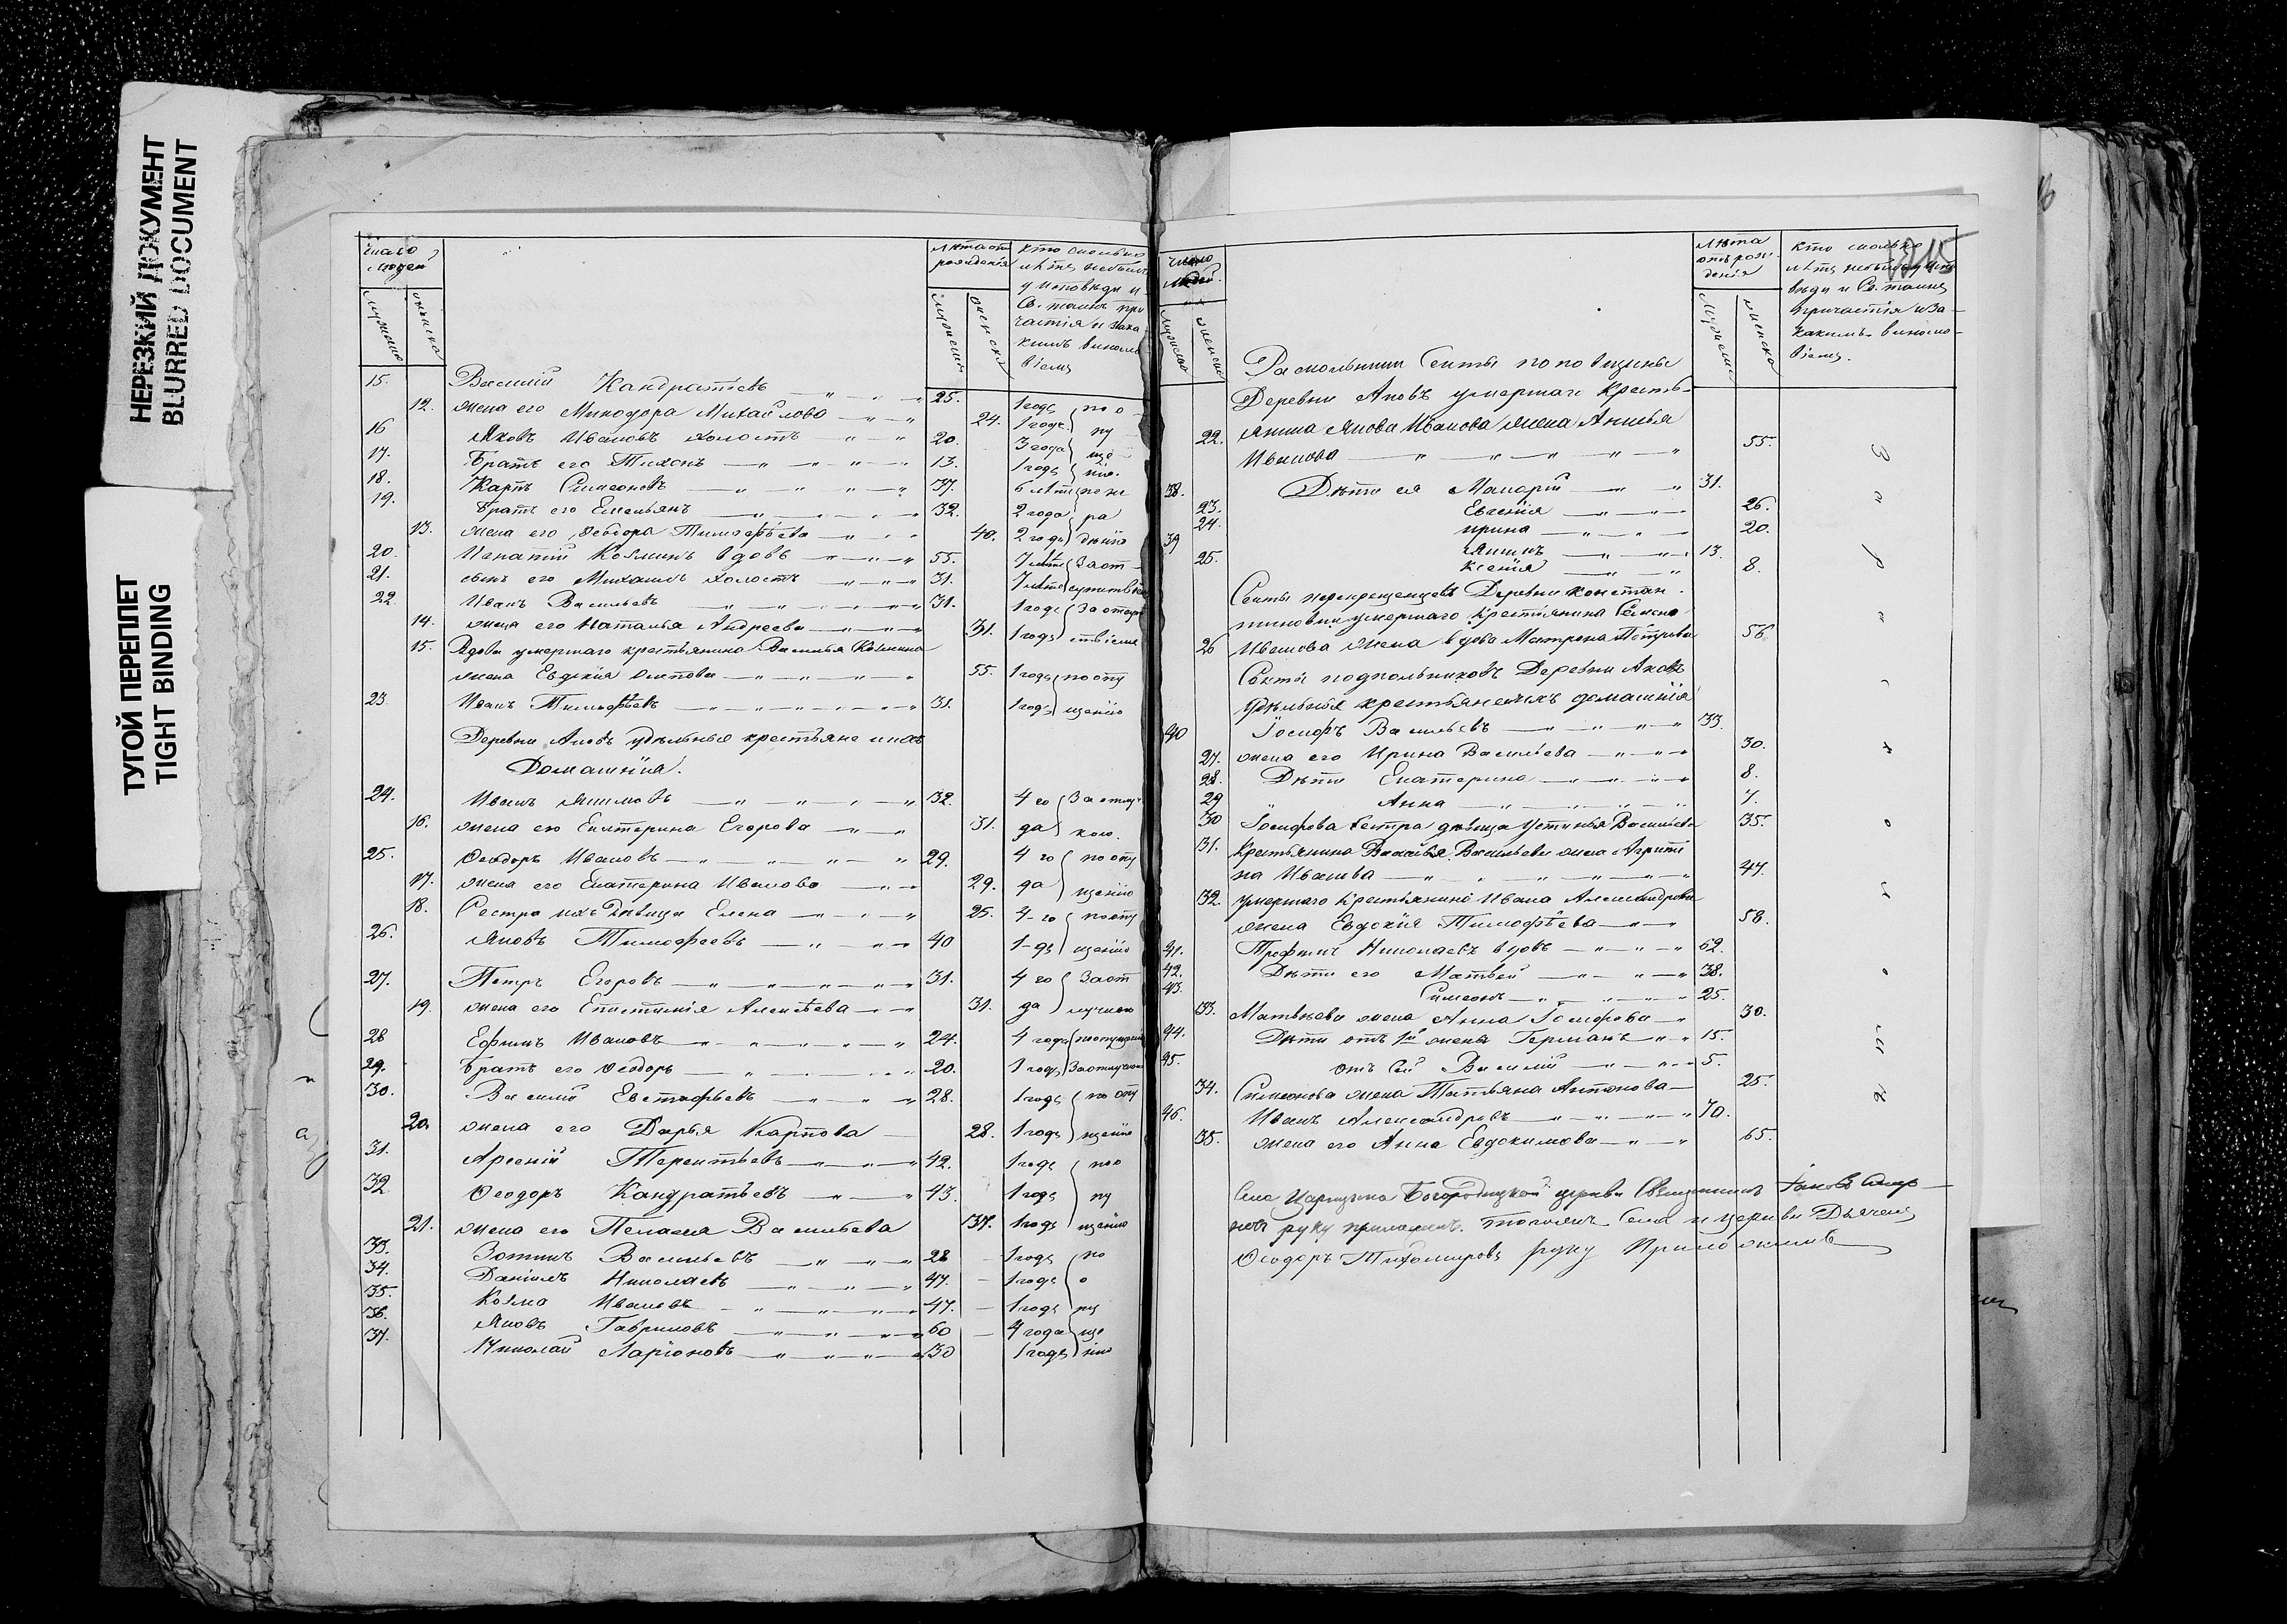 НЕРЕЗКИЙ ДОКУМЕНТ
BLURRED DOCUMENT
ТУГОЙ ПЕРЕПЛЕТ
TIGHT BINDING
число людей
мужеска
женска
лѣта отъ рожденія
кто сколько
лѣтъ небылъ
у исповѣди и
Св. таинъ при
частія и зака
кимъ винасло
віемъ
15. Василій Кандратіевъ 25. 1 годъ по о
12. жена его Минодора Михайлова 24. 1 годъ пу
16 Яковъ Ивановъ холостъ 20. 3 года ще
17. Братъ его Тихонъ 13. 1 годъ нію.
18. Карпъ Симеоновъ 37. 6 лѣтъ
19. Братъ его Емельянъ 32. 2 года ра
13. жена его Ѳеодора Тимофѣева 40. 2 года дѣнію
20. Игнатій Козминъ вдовъ 55. 7 лѣтъ За от
21. сынъ его Михаилъ холостъ 31. 7 лѣтъ
22. Иванъ Васильевъ 31. 1 годъ За отсут
14. жена его Наталья Андреева 31. 1 годъ ствіемъ
15. Вдова умершаго крестьянина Василья Козмина
жена Евдокія Осипова 55. 1 годъ по опу
23 Иванъ Тимофѣевъ 31. 1 годъ щенію
Деревни Аковъ удѣльныя крестьяне и ихъ
Домашнія.
24. Иванъ Якимовъ 32. 4 го За отлуч
16. жена его Екатерина Егорова 31. да кою.
25. Ѳеодоръ Ивановъ 29. 4 го по опу
17. жена его Екатерина Иванова 29. да щенію
18. Сестра ихъ дѣвица Елена 25. 4-го по опу
26. Яковъ Тимофеевъ 40 1-дъ щенію
27. Петръ Егоровъ 31. 4 го За от
19. жена его Епистимія Алексѣева 31. да лучкою
28 Ефимъ Ивановъ 24. 4 года по опущенію
29. Братъ его Ѳеодоръ 20. 1 годъ За отлучкою
30. Василій Евстафьевъ 28. 1 годъ по опу
20. жена его Дарья Карпова 28. 1 годъ щенію
31. Арсеній Терентьевъ 42. 1 годъ по о
32 Ѳеодоръ Кандратьевъ 43. 1 годъ пу
21. жена его Пелагея Васильева 37. 1 годъ щенію
33. Зотикъ Васильевъ 28 1 годъ по
34. Даніилъ Николаевъ 47. 1 годъ о
35. Козма Ивановъ 47. 1 годъ пу
36. Яковъ Гавриловъ 60 4 года ще
37. Николай Ларіоновъ 30 1 годъ нію
число людей.
мужеска
женска
Лѣта
отъ рож
денія
Кто сколько
лѣтъ небылъ у испо
вѣди и Св. таинъ
причастія и за
какимъ винасло
віемъ.
Раскольники Секты поповщины
Деревни Аковъ умершаго Кресть
22. янина Якова Иванова жена Анисья
Иванова 55.
38. Дѣти ея Макарій 31.
23. Евгенія 26.
24. Ирина 20.
39 Якимъ 13.
25. Ксенія 8.
Секты перекрещенцевъ Деревни Констан
тиновки умершаго Крестьянина Семена
26 Иванова жена вдова Матрона Петрова 56
Секты подпольниковъ Деревни Аковъ
Удѣльныя крестьяне и ихъ домашнія
40 Іосифъ Васильевъ 33.
27. жена его Ирина Васильева 30.
28. Дѣти Екатерина 8.
29 Анна
30 Іосифова Сестра дѣвица Устинья Васильева 35.
31. Крестьянина Василья Васильева жена Агрипи
на Иванова 47.
32. умершаго Крестьянина Ивана Александрова
жена Евдокія Тимофѣева 58.
41. Трефилъ Николаевъ вдовъ 62.
42. Дѣти его Матвей 38.
43. Симеонъ 25.
33. Матвѣева жена Анна Іосифова 30.
44. Дѣти отъ 1й жены Германъ 15.
45. отъ сей Василій 5.
34. Симеонова жена Татьяна Антонова 25.
46. Иванъ Александровъ 70.
35. жена его Анна Евдокимова 65.
З а р а с к о л о м ъ
Села Царицына Богородицкой церкви Священникъ Іаковъ
руку приложилъ. тогоже Села и церкви Дьячекъ
Ѳеодоръ Тихомировъ руку Приложилъ